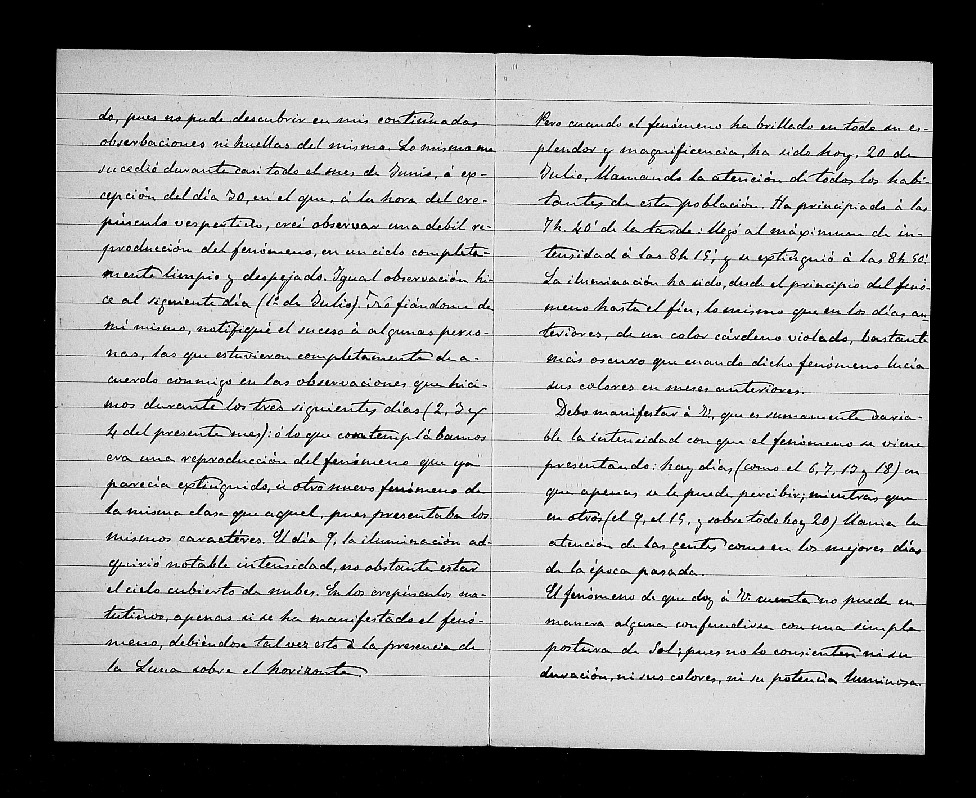 do, pues no pude descubrir en mis continuadas
observaciones ni huellas del mismo. Lo mismo me
sucedió durante casi todo el mes de Junio, á ex-
cepción del día 30, en el que, á la hora del cre-
púsculo vespertino, creí observar una debil re-
producción del fenómeno, en un cielo completa-
mente limpio y despejado. Igual observación hi-
ce al siguiente día (1º de Julio). No fiándome de
mi mismo, notifiqué el suceso á algunas perso-
nas, las que estuvieron completamente de a-
cuerdo conmigo en las observaciones que hici-
mos durante los tres siguientes días (2, 3 y
4 del presente mes): ó lo que contemplábamos
era una reproducción del fenómeno que ya
parecía extinguido, ú otro nuevo fenómeno de
la misma clase que aquel, pues presentaba los
mismos caractéres. El día 9, la iluminación ad-
quirió notable intensidad, no obstante estar
el cielo cubierto de nubes. En los crepúsculos ma-
tutinos, apenas si se ha manifestado el fenó-
meno, debiéndose tal vez esto á la presencia de
la Luna sobre el horizonte.
Pero cuando el fenómeno ha brillado en todo su es-
plendor y magnificencia, ha sido hoy, 20 de
Julio, llamando la atención de todos los habi-
tantes de esta población. Ha principiado á las
7h. 40' de la tarde: llegó al máximum de in-
tensidad á las 8h 15', y se extinguió á las 8h 50'.
La iluminación ha sido, desde el principio del fenó-
meno hasta el fín, lo mismo que en los días an-
teriores, de un color cárdeno violado, bastante
más oscuro que cuando dicho fenómeno lucía
sus colores en meses anteriores.
Debo manifestar á V., que es sumamente varia-
ble la intensidad con que el fenómeno se viene
presentando: hay días (como el 6, 7, 17 y 18) en
que apenas se le puede percibir; mientras que
en otros (el 9, el 15, y sobre todo hoy 20) llama la
atención de las gentes como en los mejores días
de la época pasada.
El fenómeno de que doy á V. cuenta no puede en
manera alguna confundirse con una simple
postura de Sol; pues no lo consienten ni su
duración, ni sus colores, ni su potencia luminosa.